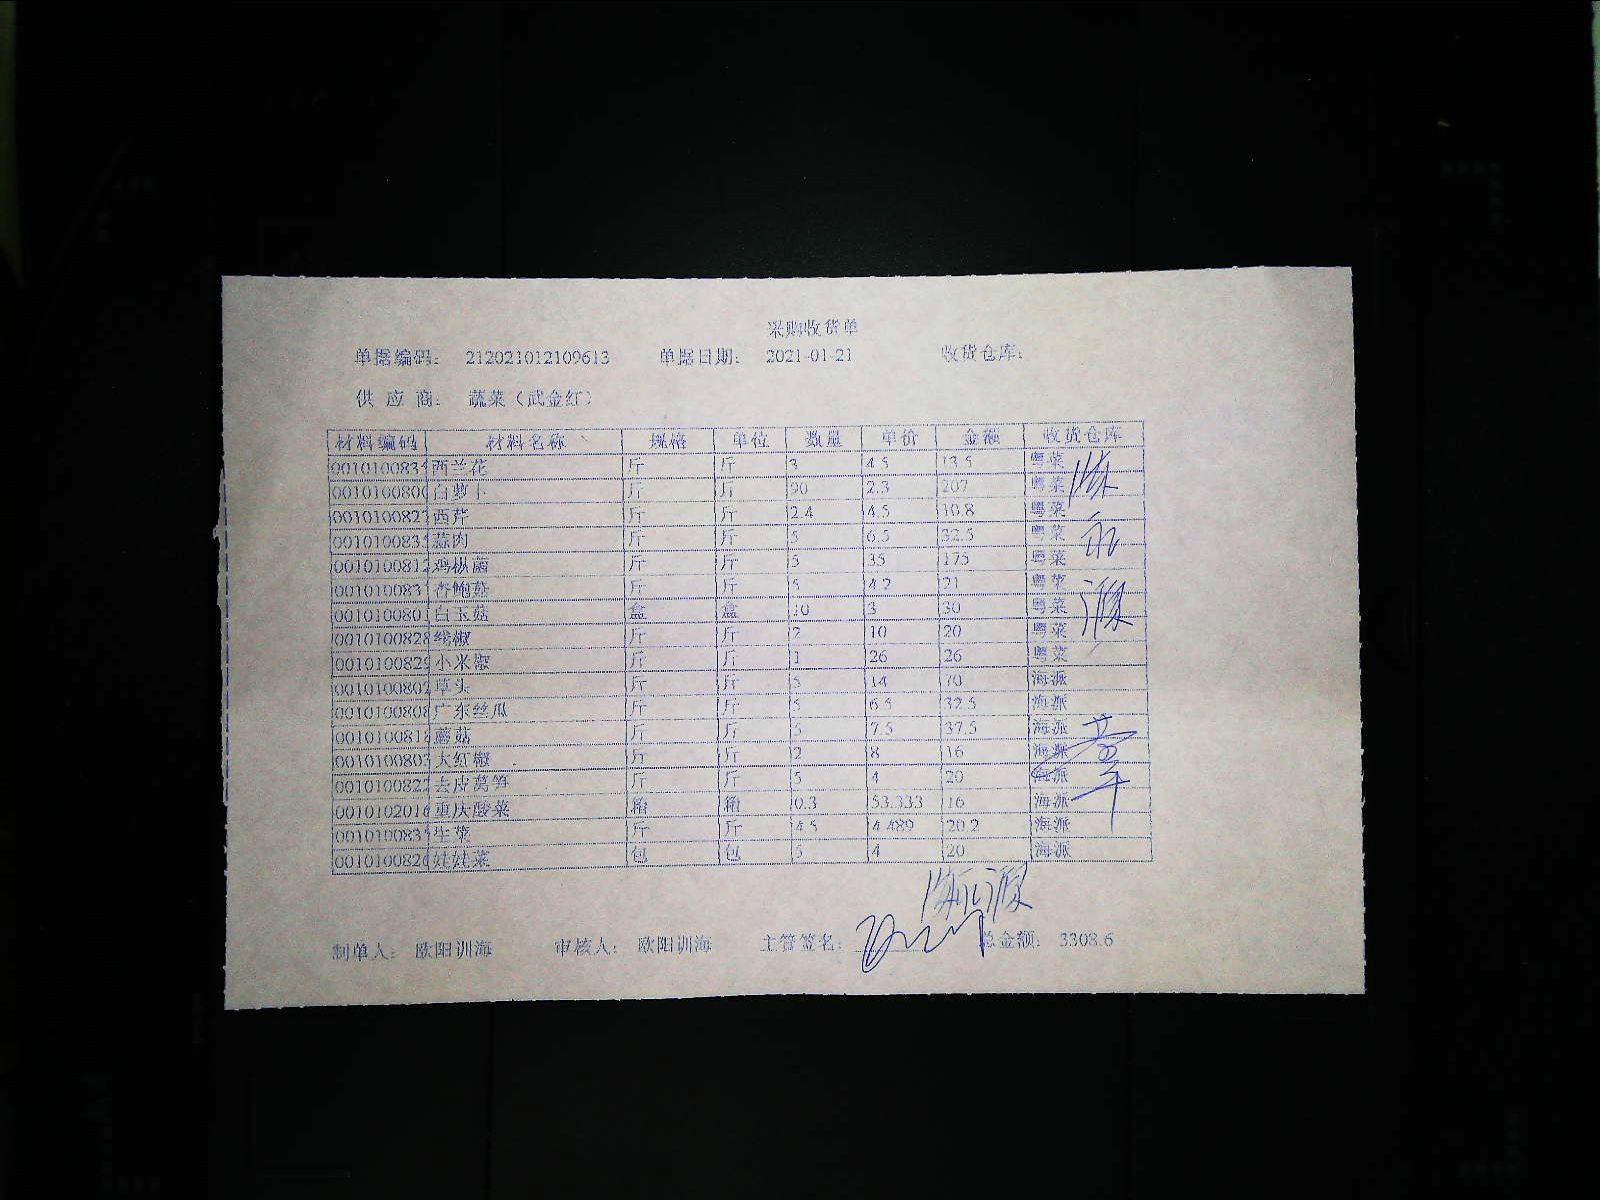 采购收货单
单据编码： 212021012109613 单据日期： 2021-01-21 收货仓库：
供 应 商： 蔬菜（武金红）
材料编码 材料名称 规格 单位 数量 单价 金额 收货仓库
001010083 西兰花 斤 斤 3 4.5 13.5 粤菜
001010080 白萝卜 斤 斤 90 2.3 207 粤菜
001010082 西芹 斤 斤 2.4 4.5 10.8 粤菜
001010083 蒜肉 斤 斤 5 6.5 32.5 粤菜
001010081 鸡枞菌 斤 斤 5 35 175 粤菜
001010083 杏鲍菇 斤 斤 5 4.2 21 粤菜
001010080 白玉菇 盒 盒 10 3 30 粤菜
001010082 线椒 斤 斤 2 10 20 粤菜
001010082 小米椒 斤 斤 1 26 26 粤菜
001010080 草头 斤 斤 5 14 70 海派
001010080 广东丝瓜 斤 斤 5 6.5 32.5 海派
001010081 蘑菇 斤 斤 5 7.5 37.5 海派
001010080 大红椒 斤 斤 2 8 16 海派
001010082 去皮莴笋 斤 斤 5 4 20 海派
001010201 重庆酸菜 箱 箱 0.3 53.333 16 海派
001010083 生菜 斤 斤 4.5 4.489 20.2 海派
001010082 娃娃菜 包 包 5 4 20 海派
制单人： 欧阳训海 审核人： 欧阳训海 主管签名： 总金额： 3308.6